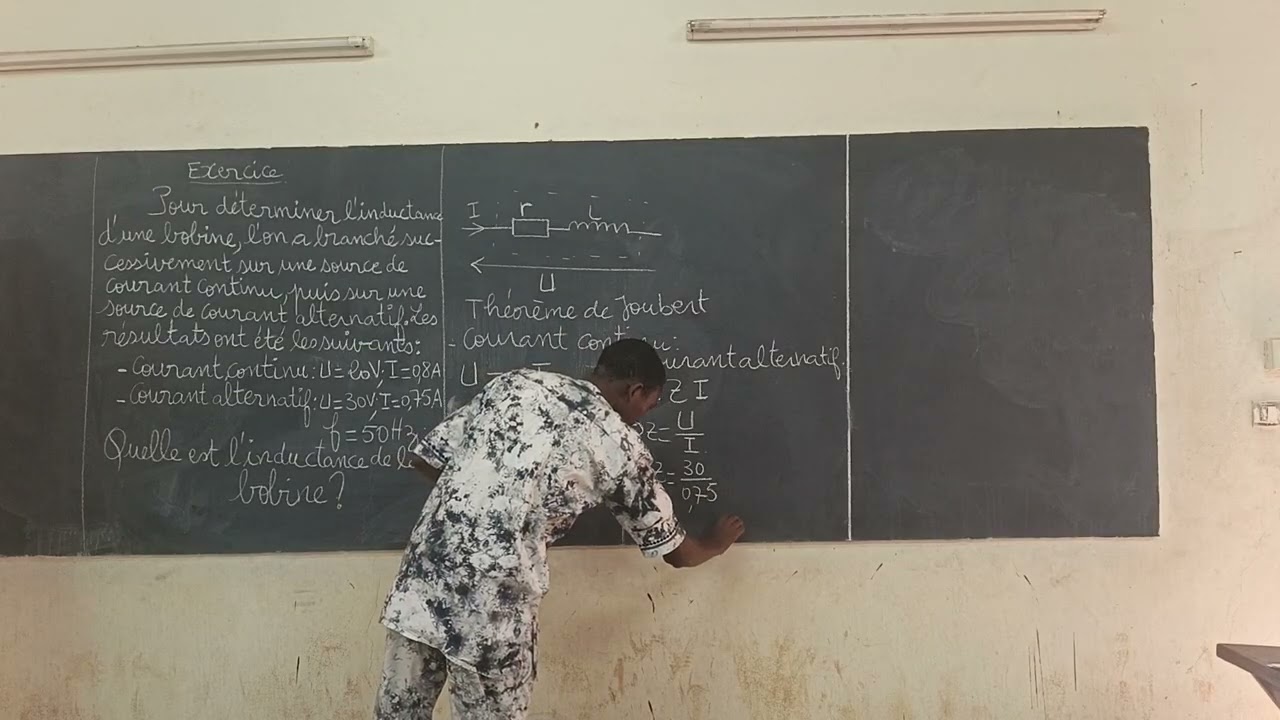 Exercice
Pour déterminer l'inductance
d'une bobine, l'on a branché suc-
cessivement sur une source de
courant continu, puis sur une
source de courant alternatif. Les
résultats ont été les suivants:
- Courant continu: U=  V; I=0,8A
- Courant alternatif: U=30V; I=0,75A
f=50Hz
Quelle est l'inductance de
bobine?
I r L
U
Théorème de Joubert
- Courant continu:
courant alternatif.
U = I
Z I
Z=U/I
Z=30/0,75